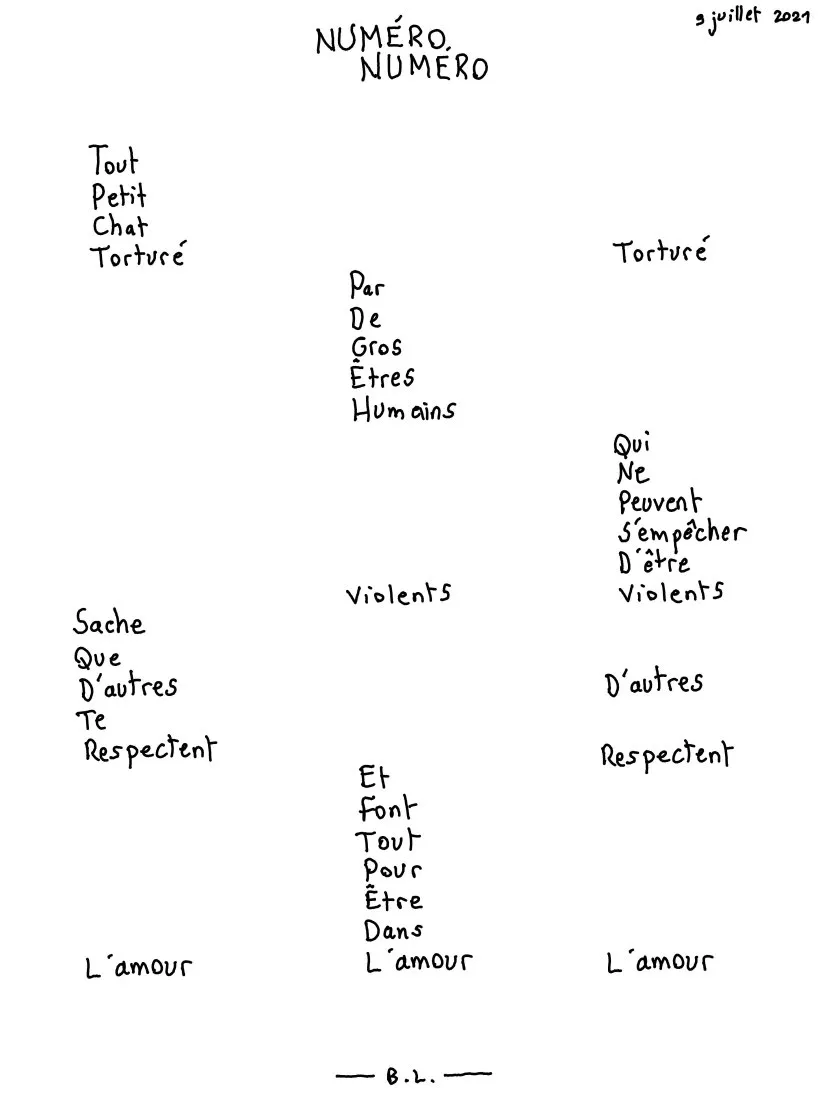 9 juillet 2021
NUMÉRO,
NUMÉRO
Tout
Petit
Chat
Torturé Torturé
Par
De
Gros
Êtres
Humains
Qui
Ne
Peuvent
S'empêcher
D'être
Violents Violents
Sache
Que
D'autres D'autres
Te
Respectent Respectent
Et
Font
Tout
Pour
Être
Dans
L'amour L'amour L'amour
— B.L. —